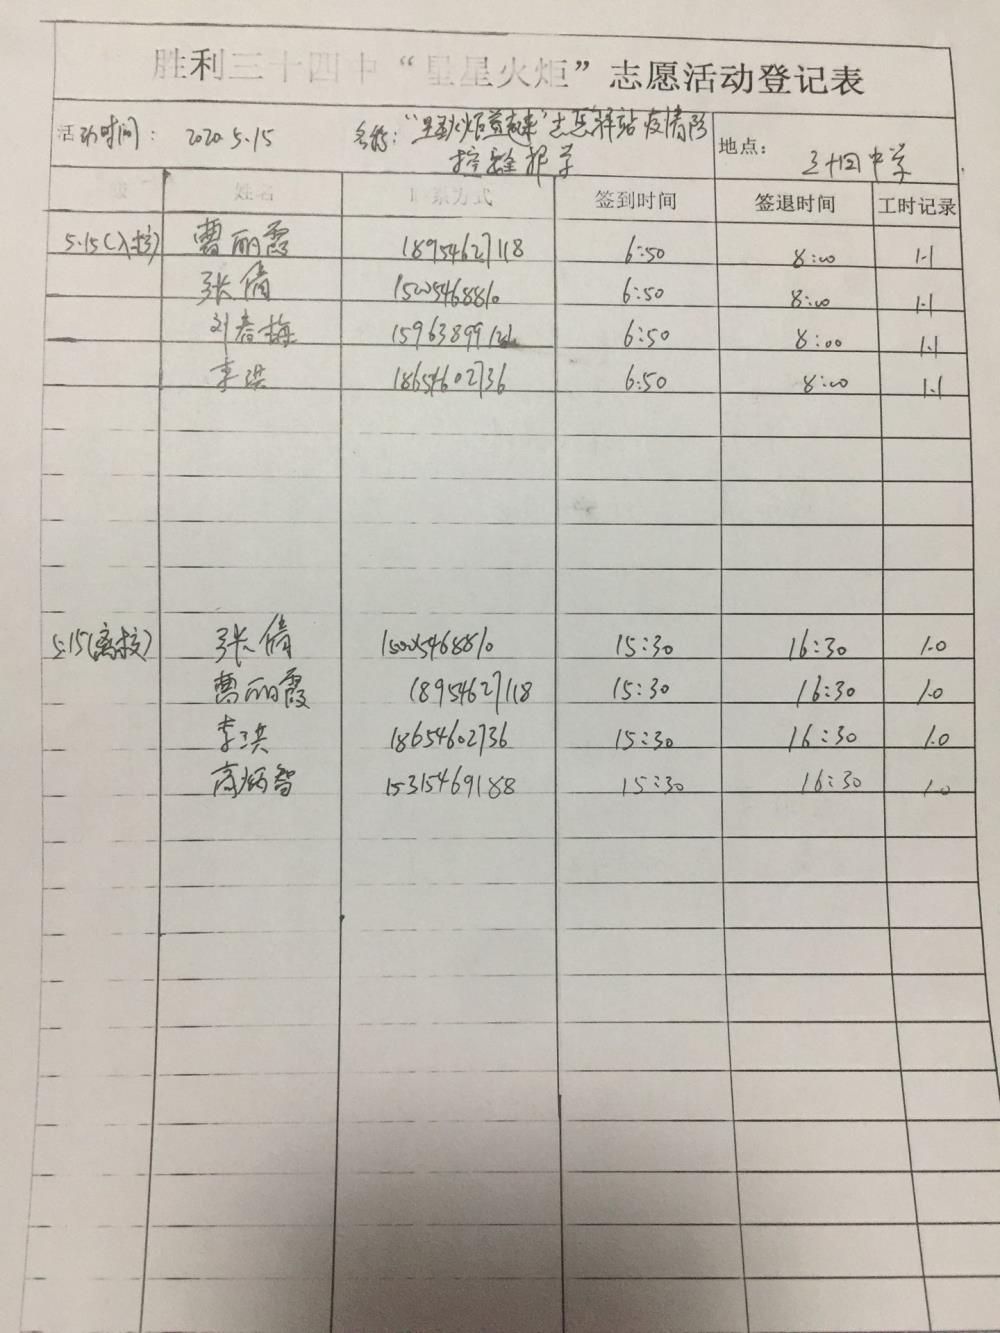 胜利三十四中“星星火炬”志愿活动登记表
活动时间: 2020.5.15 名称: 志愿驿站疫情防 地点: 三十四中学
控
姓名 联系方式 签到时间 签退时间 工时记录
5.15(入校) 曹丽霞 18954627118 6:50 8:00 1.1
张倩 15005468810 6:50 8:00 1.1
刘春梅 6:50 8:00 1.1
李洪 18654602736 6:50 8:00 1.1
5.15(离校) 张倩 15005468810 15:30 16:30 1.0
曹丽霞 18954627118 15:30 16:30 1.0
李洪 18654602736 15:30 16:30 1.0
高炳智 15315469188 15:30 16:30 1.0